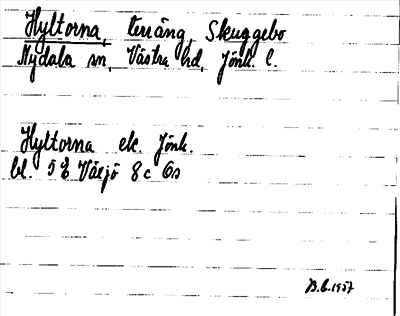 Hyltorna, terräng, Skuggebo
Nydala sn, Västra hd, Jönk. l.
Hyltorna ek. Jönk.
bl. 5 E Växjö 8 c 6s
B.E. 1957